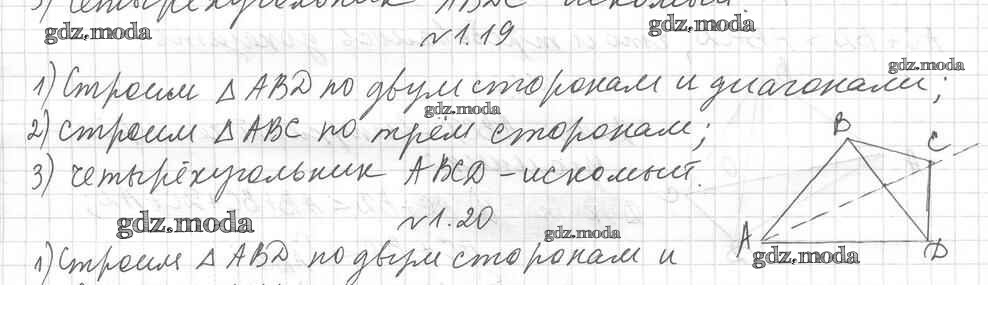 3) четырёхугольник ABDC - искомый.
gdz.moda
gdz.moda
№1.19
gdz.moda
1) Строим △ ABD по двум сторонам и диагонали;
gdz.moda
2) строим △ ABC по трём сторонам;
3) четырёхугольник ABCD - искомый.
B
C
A
D
gdz.moda
№1.20
gdz.moda
gdz.moda
1) Строим △ ABD по двум сторонам и